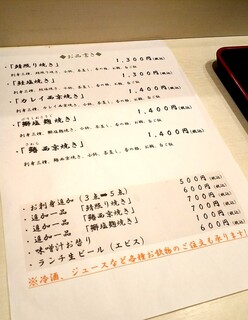 ◆お品書き◆
・「鯖照り焼き」 1,300円(税込)
刺身三種、鯖照り焼き、小鉢、茶蒸し、香の物、お椀、白ご飯
・「鮭塩焼き」 1,300円(税込)
刺身三種、鮭塩焼き、小鉢、茶蒸し、香の物、お椀、白ご飯
・「カレイ西京焼き」 1,400円(税込)
刺身三種、カレイ西京焼き、小鉢、茶蒸し、香の物、お椀、白ご飯
・「鰤塩麹焼き」 1,400円(税込)
刺身三種、鰤塩麹焼き、小鉢、茶蒸し、香の物、お椀、白ご飯
さわら
・「鰆西京焼き」 1,400円(税込)
刺身三種、鰆西京焼き、小鉢、茶蒸し、香の物、お椀、白ご飯
・お刺身追加(3点➡5点) 500円(税込)
・追加一品 「鯖照り焼き」 600円(税込)
・追加一品 「鰆西京焼き」 700円(税込)
・追加一品 「鰤塩焼き」 700円(税込)
・味噌汁お替り 100円(税込)
・ランチ生ビール(エビス) 600円(税込)
※冷酒、ジュースなど各種お飲物のご注文も承ります!